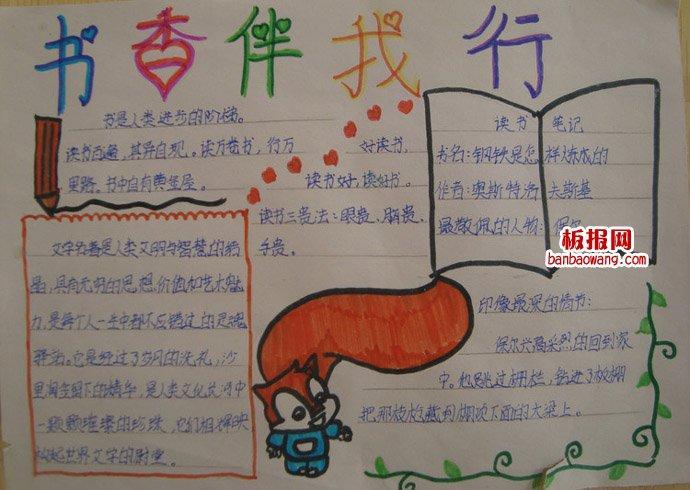 书香伴我行
书是人类进步的阶梯。
读书百遍，其异自现。读万卷书，行万
里路。书中自有黄金屋。
好读书，
读书好，读好书。
读书三贵法：眼贵、脑贵、
手贵。
读书 笔记
书名：钢铁是怎样炼成的
作者：奥斯特洛夫斯基
最敬佩的人物：保尔
板报网
banbaowang.com
文字名著是人类文明与智慧的结
晶，具有无明的思想价值和艺术魅
力，是每个人一生中都不应错过的灵魂
驿站。它是经过了岁月的洗礼，沙
里淘金留下的精华，是人类文化长河中
一颗颗璀璨的珍珠，它们相辉映
构起世界文字的殿堂。
印像最深的情节：
保尔兴高采烈的回到家
中。他跳过栅栏，钻进了板棚
把那枝枪藏到棚顶下面的大梁上。